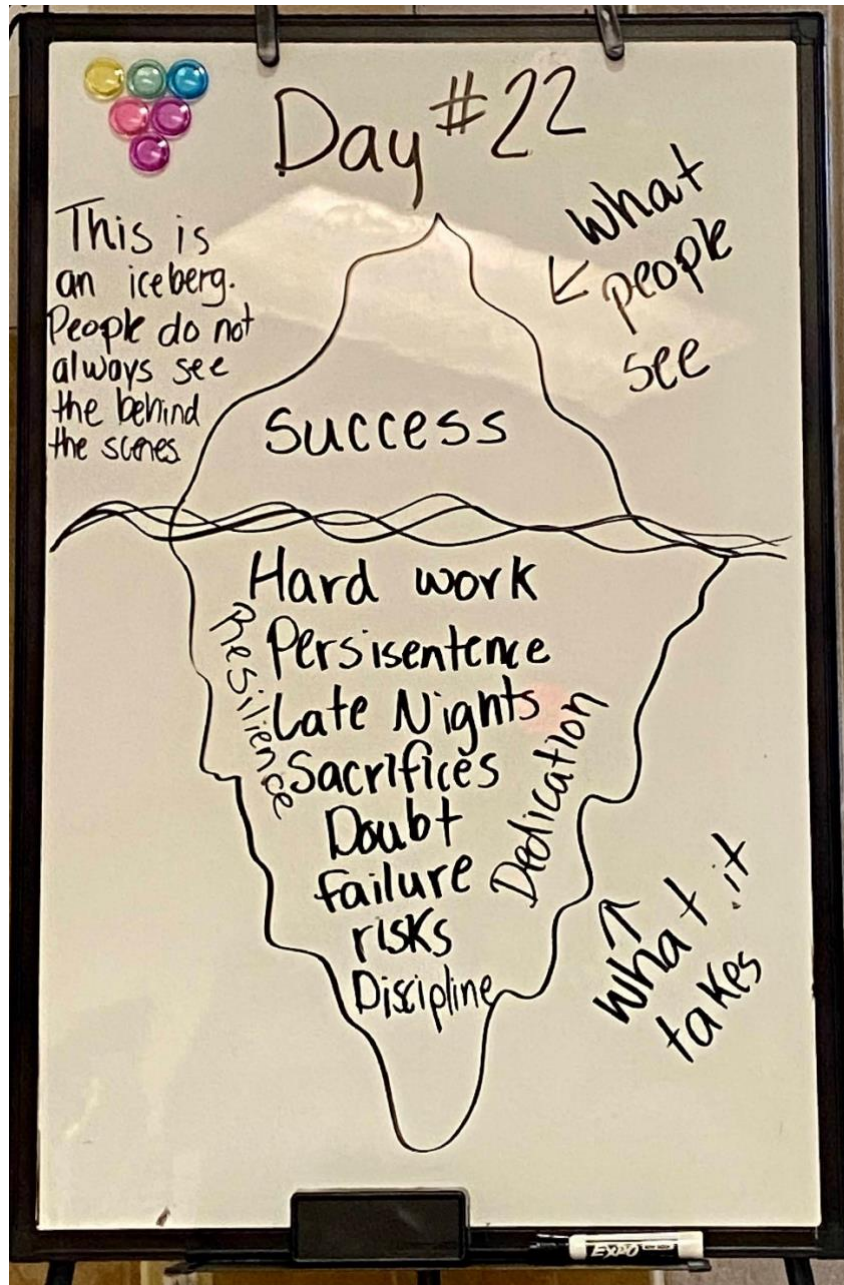 Day #22
This is
an iceberg.
People do not
always see
the behind
the scenes
What
people
see
success
Hard work
Persisentence
Late Nights
Sacrifices
Doubt
failure
risks
Discipline
Resilience
Dedication
What it
takes
EXPO